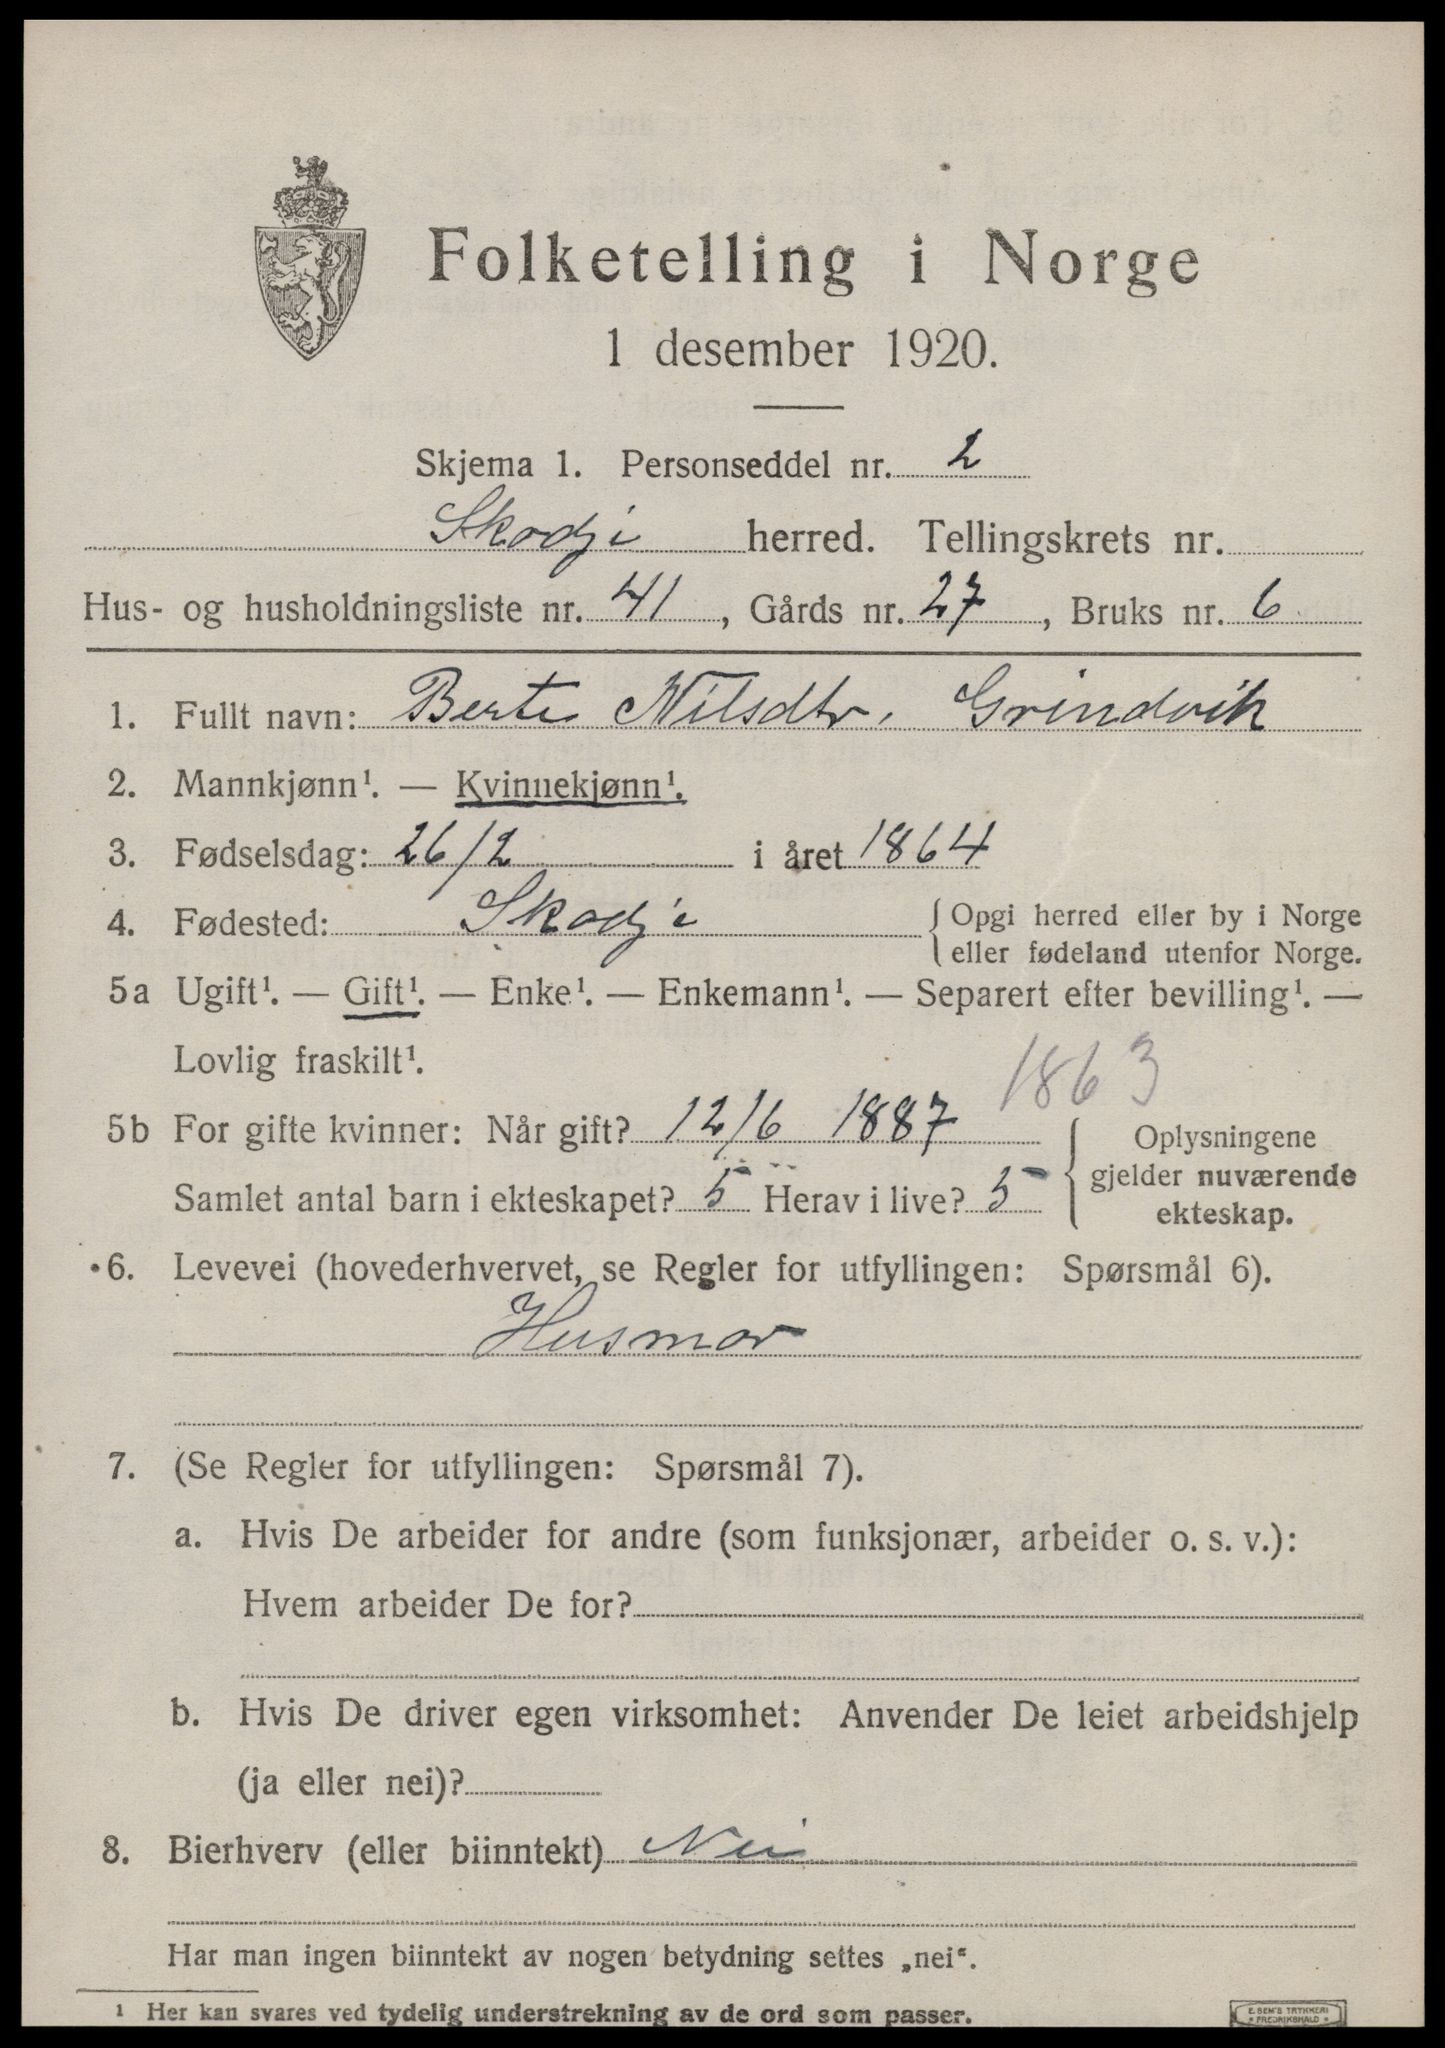 Folketelling i Norge
1 desember 1920.
Skjema 1. Personseddel nr. 2
Skodje herred. Tellingskrets nr.
Hus- og husholdningsliste nr. 41, Gårds nr. 27, Bruks nr. 6
1. Fullt navn: Berte Nilsdtr. Grindvik
2. Mannkjønn¹. — Kvinnekjønn¹.
3. Fødselsdag: 26/2 i året 1864
4. Fødested: Skodje { Opgi herred eller by i Norge
eller fødeland utenfor Norge.
5a Ugift¹. — Gift¹. — Enke¹. — Enkemann¹. — Separert efter bevilling¹. —
Lovlig fraskilt¹.
1863
5b For gifte kvinner: Når gift? 12/6 1887
Samlet antal barn i ekteskapet? 5 Herav i live? 5
{ Oplysningene
gjelder nuværende
ekteskap.
6. Levevei (hovederhvervet, se Regler for utfyllingen: Spørsmål 6).
Husmor
7. (Se Regler for utfyllingen: Spørsmål 7).
a. Hvis De arbeider for andre (som funksjonær, arbeider o. s. v.):
Hvem arbeider De for?
b. Hvis De driver egen virksomhet: Anvender De leiet arbeidshjelp
(ja eller nei)?
8. Bierhverv (eller biinntekt) Nei
Har man ingen biinntekt av nogen betydning settes „nei“.
¹ Her kan svares ved tydelig understrekning av de ord som passer.
E. SEM'S TRYKKERI
* FREDRIKSHALD *